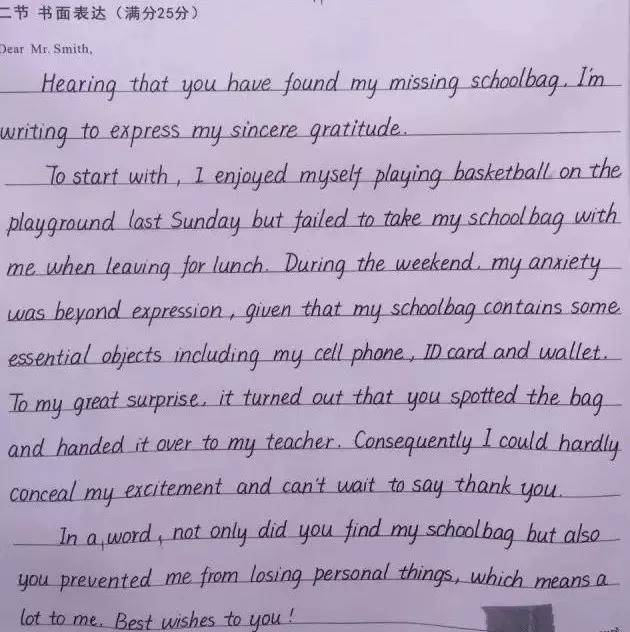 二节 书面表达（满分25分）
Dear Mr. Smith,
Hearing that you have found my missing schoolbag, I'm
writing to express my sincere gratitude.
To start with, I enjoyed myself playing basketball on the
playground last Sunday but failed to take my schoolbag with
me when leaving for lunch. During the weekend, my anxiety
was beyond expression, given that my schoolbag contains some
essential objects including my cell phone, ID card and wallet.
To my great surprise, it turned out that you spotted the bag
and handed it over to my teacher. Consequently I could hardly
conceal my excitement and can't wait to say thank you.
In a word, not only did you find my schoolbag but also
you prevented me from losing personal things, which means a
lot to me. Best wishes to you!